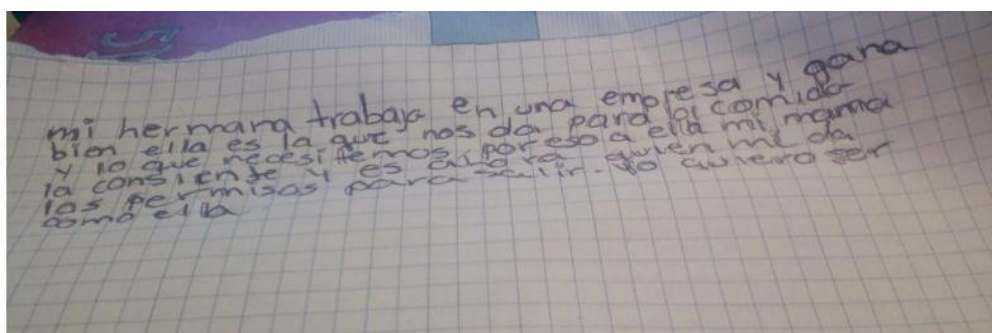 mi hermana trabaja en una empresa y gana
bien ella es la que nos da para la comida
y lo que necesitemos, por eso a ella mi mamá
la consiente y es ahora quien me da
los permisos para salir. yo quiero ser
como ella